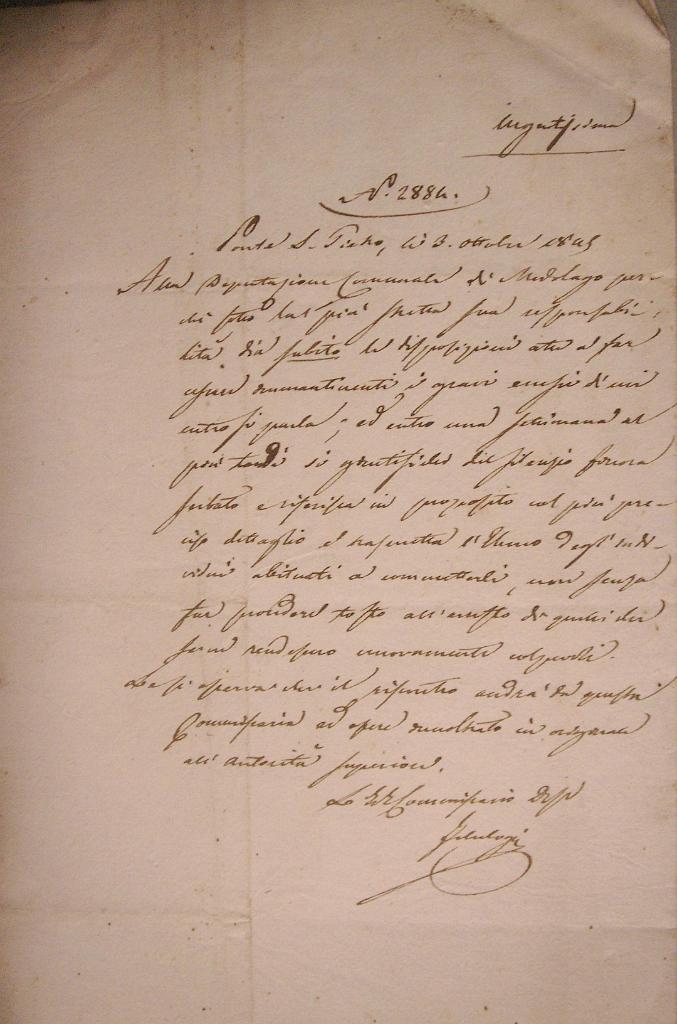 Urgentissima
N.° 2884.
Ponte S. Pietro, li 3. ottobre 1845
Alla Deputazione Comunale di Medolago per-
chè sotto la più stretta sua responsabi-
lità dia subito le disposizioni atte a far
cessare immantinenti i gravi eccessi di cui
entro si parla; ed entro una settimana al
più tardi si giustifichi del silenzio finora
serbato e riferisca in proposito col più pre-
ciso dettaglio e trasmetta l'Elenco degl'indi-
vidui abituati a commetterli, non senza
far procedere tosto all'arresto di quelli che
se ne rendessero nuovamente colpevoli.
Le si osserva che il riscontro andrà da questo
Commissario ad essere inoltrato in originale
all'autorità superiore.
Lo I. R. Commissario Dist.